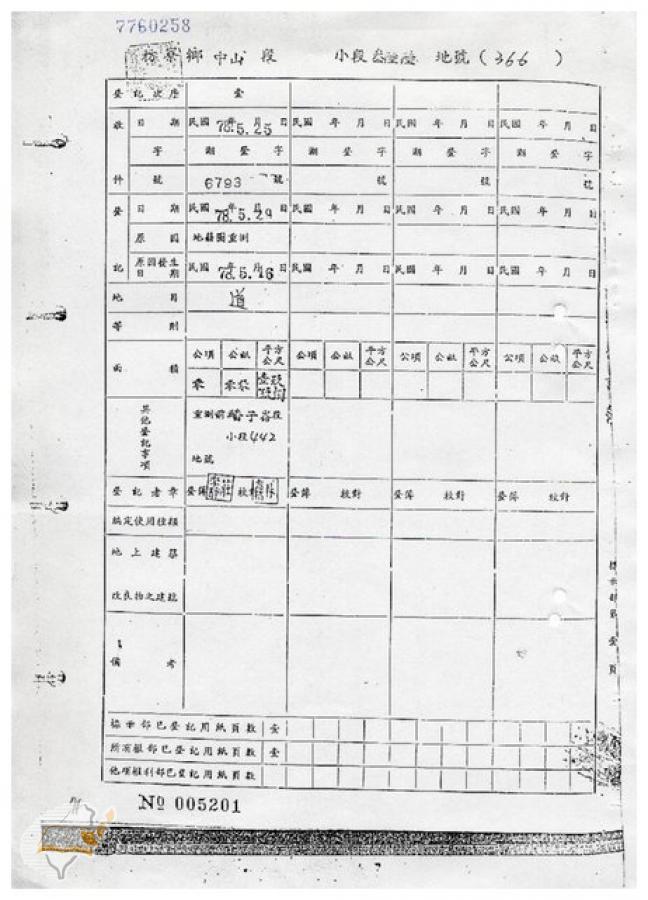 7760258
枋寮鄉 中山 段 小段 叁陸陸 地號(366)
登記次序 壹
收件 日期 民國78年5月25日 民國 年 月 日 民國 年 月 日 民國 年 月 日
字 潮登字 潮登字 潮登字 潮登字
號 6793號 號 號 號
登記 日期 民國78年5月29日 民國 年 月 日 民國 年 月 日 民國 年 月 日
原因 地籍圖重測
原因發生日期 民國78年5月16日 民國 年 月 日 民國 年 月 日 民國 年 月 日
地目 道
等則
面積 公頃 公畝 平方公尺 公頃 公畝 平方公尺 公頃 公畝 平方公尺 公頃 公畝 平方公尺
零
其他登記事項 重測前番子崙段
小段442
地號
登記者章 登簿 校對 登簿 校對 登簿 校對 登簿 校對
編定使用種類
地上建築
改良物之建號
備考
標示部第壹頁
標示部已登記用紙頁數 壹
所有權部已登記用紙頁數 壹
他項權利部已登記用紙頁數
№ 005201